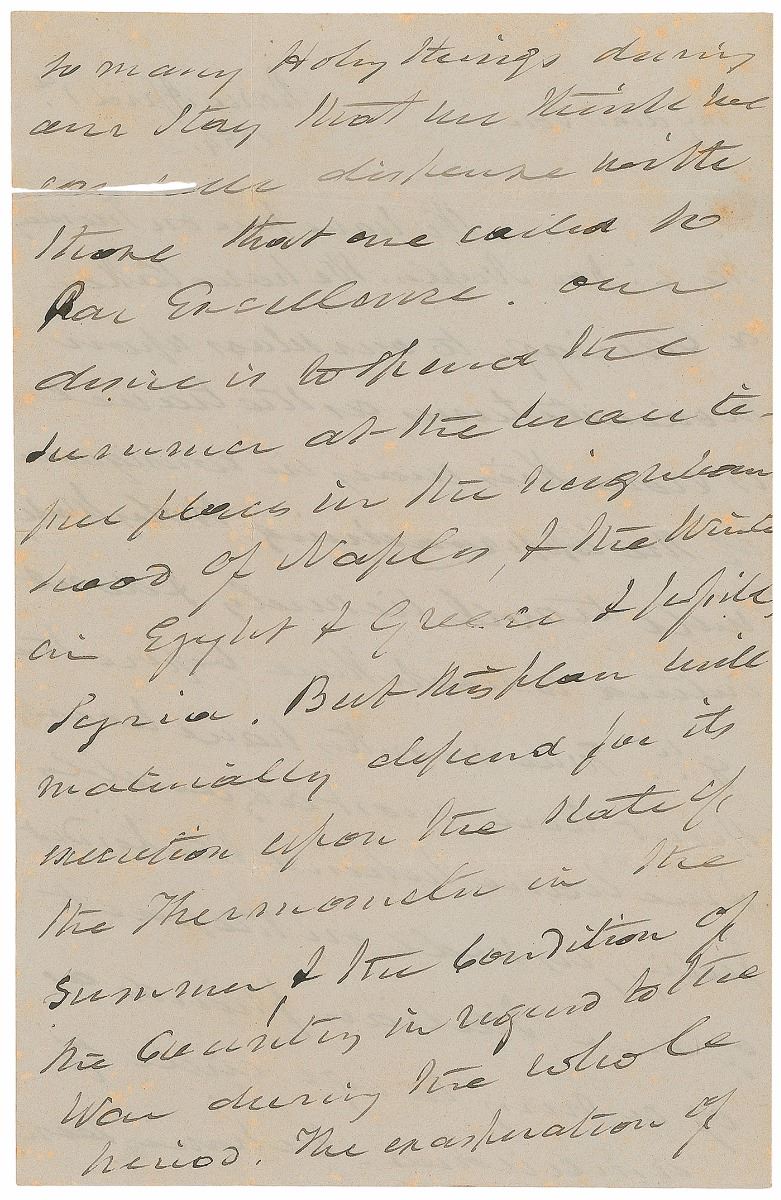 so many Holy things during
our stay that we think we
can well dispense with
those that are called so
Par Excellence. Our
desire is to spend the
summer at the beauti-
ful places in the neighbour
hood of Naples, & the Winter
in Egypt & Greece &
Syria. But this plan will
materially depend for its
execution upon the state of
the Thermometer in the
summer, & the Condition of
the Country in regard to the
War during the whole
period. The exasperation of